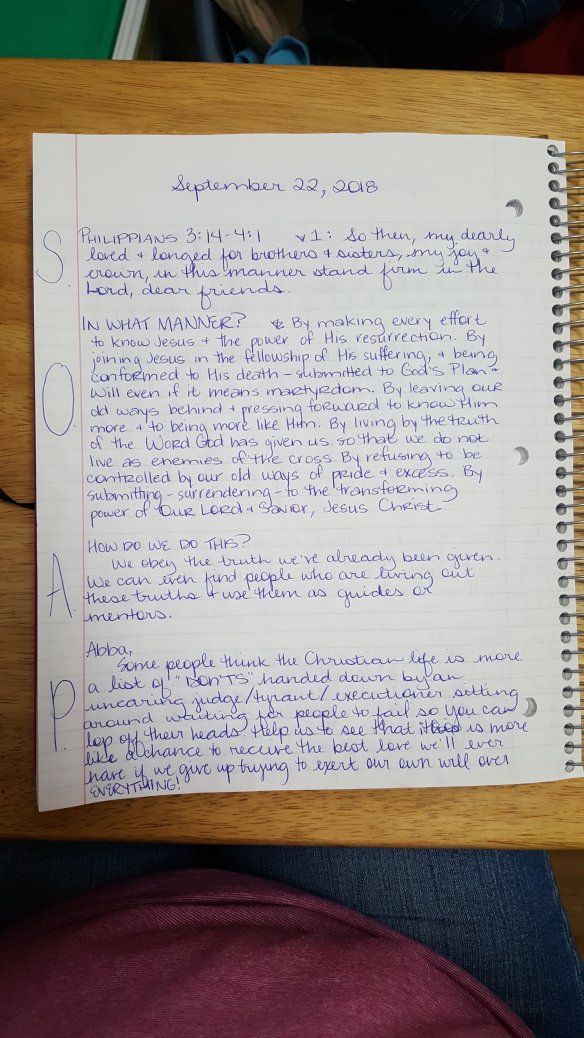 September 22, 2018
S. PHILIPPIANS 3:14-4:1 v1: So then, my dearly
loved + longed for brothers + sisters, my joy +
crown, in this manner stand firm in the
Lord, dear friends.
O. IN WHAT MANNER? By making every effort
to know Jesus + the power of His resurrection. By
joining Jesus in the fellowship of His suffering, + being
conformed to His death - submitted to God's Plan +
Will even if it means martyrdom. By leaving our
old ways behind + pressing forward to know Him
more + to being more like Him. By living by the truth
of the Word God has given us so that we do not
live as enemies of the cross. By refusing to be
controlled by our old ways of pride + excess. By
submitting - surrendering - to the transforming
power of Our Lord + Savior, Jesus Christ.
A. HOW DO WE DO THIS?
We obey the truth we've already been given.
We can even find people who are living out
these truths + use them as guides or
mentors.
P. Abba,
Some people think the Christian life is more
a list of "DON'TS" handed down by an
uncaring judge/tyrant/executioner sitting
around waiting for people to fail so you can
lop off their heads. Help us to see that it is more
like a chance to receive the best love we'll ever
have if we give up trying to exert our own will over
EVERYTHING!